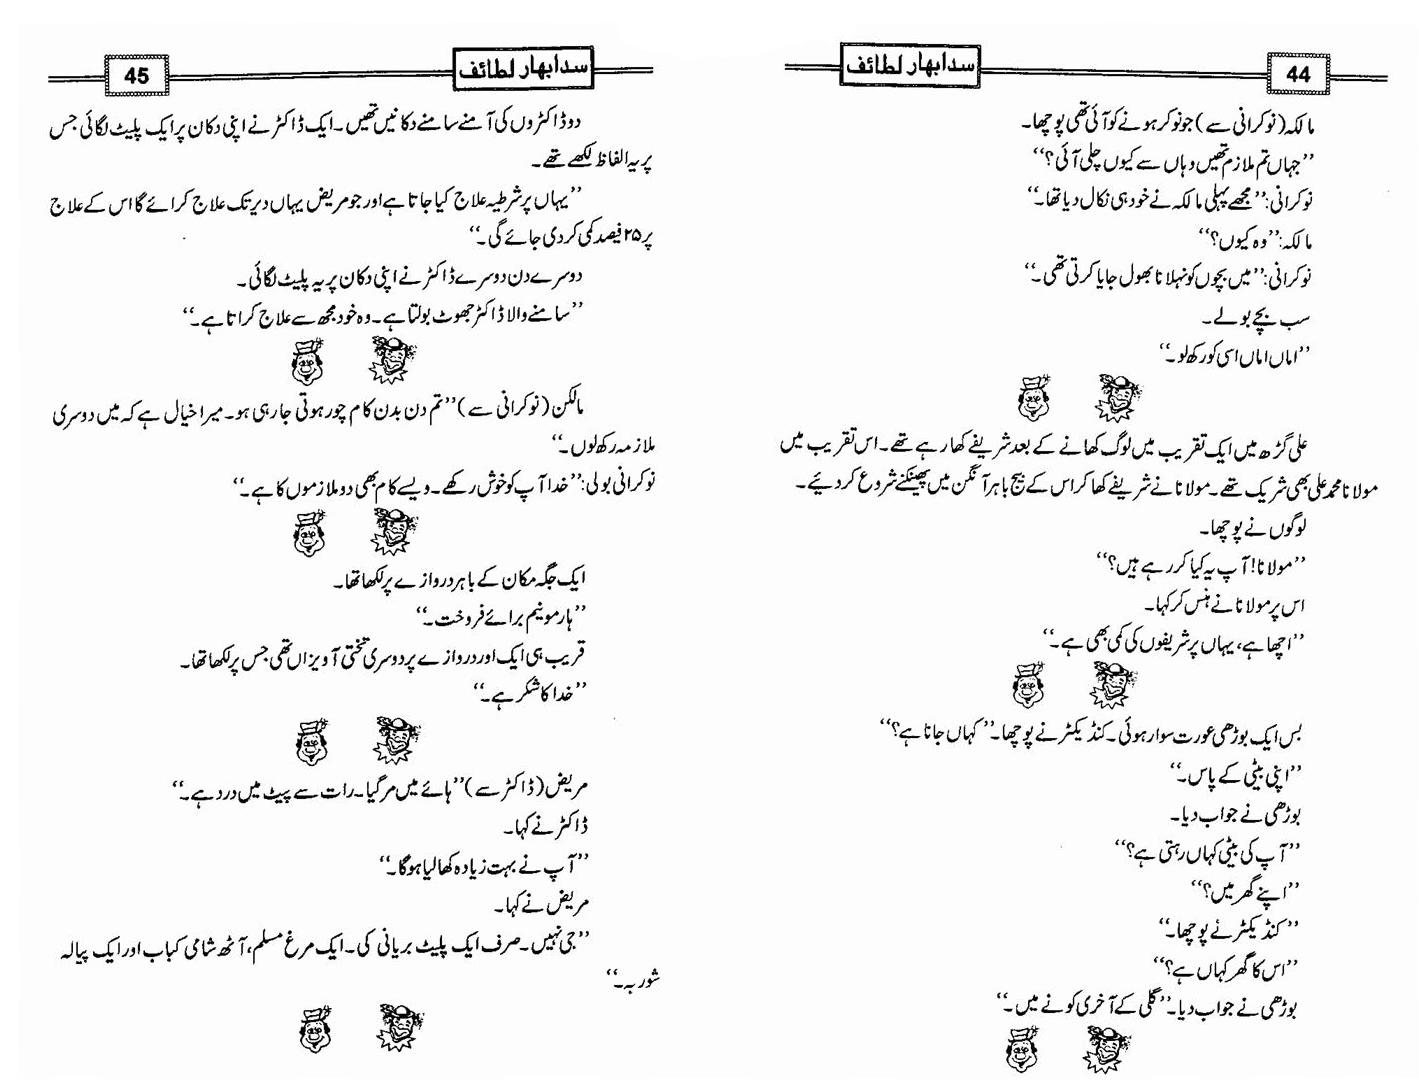 44
سدابہار لطائف
مالکہ (نوکرانی سے) جو نوکر ہونے کو آئی تھی پوچھا۔
’’جہاں تم ملازم تھیں وہاں سے کیوں چلی آئی؟‘‘
نوکرانی: ’’مجھے پہلی مالکہ نے خود ہی نکال دیا تھا۔‘‘
مالکہ: ’’وہ کیوں؟‘‘
نوکرانی: ’’میں بچوں کو نہلانا بھول جایا کرتی تھی۔‘‘
سب بچے بولے۔
’’اماں اماں اسی کو رکھ لو۔‘‘
علی گڑھ میں ایک تقریب میں لوگ کھانے کے بعد شریفے کھا رہے تھے۔ اس تقریب میں
مولانا محمد علی بھی شریک تھے۔ مولانا نے شریفے کھا کر اس کے بیج باہر آنگن میں پھینکنے شروع کر دیئے۔
لوگوں نے پوچھا۔
’’مولانا! آپ یہ کیا کر رہے ہیں؟‘‘
اس پر مولانا نے ہنس کر کہا۔
’’اچھا ہے، یہاں پر شریفوں کی کمی بھی ہے۔‘‘
بس ایک بوڑھی عورت سوار ہوئی۔ کنڈیکٹر نے پوچھا۔ ’’کہاں جانا ہے؟‘‘
’’اپنی بیٹی کے پاس۔‘‘
بوڑھی نے جواب دیا۔
’’آپ کی بیٹی کہاں رہتی ہے؟‘‘
’’اپنے گھر میں؟‘‘
’’کنڈیکٹر نے پوچھا۔‘‘
’’اس کا گھر کہاں ہے؟‘‘
بوڑھی نے جواب دیا۔ ’’گلی کے آخری کونے میں۔‘‘
سدابہار لطائف
45
دو ڈاکٹروں کی آمنے سامنے دکانیں تھیں۔ ایک ڈاکٹر نے اپنی دکان پر ایک پلیٹ لگائی جس
پر یہ الفاظ لکھے تھے۔
’’یہاں پر شرطیہ علاج کیا جاتا ہے اور جو مریض یہاں دیر تک علاج کرائے گا اس کے علاج
پر ۲۵ فیصد کمی کر دی جائے گی۔‘‘
دوسرے دن دوسرے ڈاکٹر نے اپنی دکان پر یہ پلیٹ لگائی۔
’’سامنے والا ڈاکٹر جھوٹ بولتا ہے۔ وہ خود مجھ سے علاج کراتا ہے۔‘‘
مالکن (نوکرانی سے) ’’تم دن بدن کام چور ہوتی جا رہی ہو۔ میرا خیال ہے کہ میں دوسری
ملازمہ رکھ لوں۔‘‘
نوکرانی بولی: ’’خدا آپ کو خوش رکھے۔ ویسے کام بھی دو ملازموں کا ہے۔‘‘
ایک جگہ مکان کے باہر دروازے پر لکھا تھا۔
’’ہارمونیم برائے فروخت۔‘‘
قریب ہی ایک اور دروازے پر دوسری تختی آویزاں تھی جس پر لکھا تھا۔
’’خدا کا شکر ہے۔‘‘
مریض (ڈاکٹر سے) ’’ہائے میں مر گیا۔ رات سے پیٹ میں درد ہے۔‘‘
ڈاکٹر نے کہا۔
’’آپ نے بہت زیادہ کھا لیا ہوگا۔‘‘
مریض نے کہا۔
’’جی نہیں۔ صرف ایک پلیٹ بریانی کی۔ ایک مرغ مسلم، آٹھ شامی کباب اور ایک پیالہ
شوربہ۔‘‘